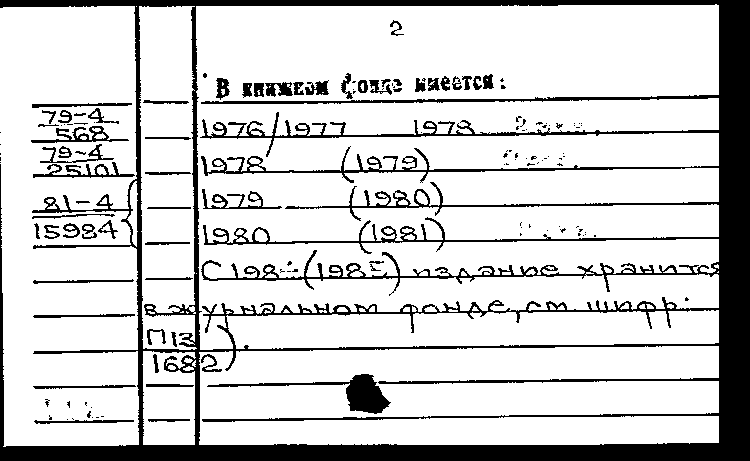 2
В книжком фонде имеется:
79-4
568 1976/1977 1978 2 экз.
79-4
25101 1978 (1979)
81-4 1979 (1980)
15984 1980 (1981)
(1985) издание хранится
в журнальном фонде, см шифр:
П13
1682).